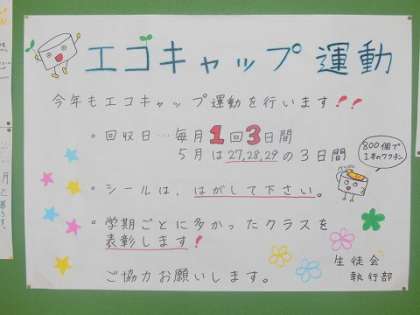 エコキャップ運動
今年もエコキャップ運動を行います!!
・回収日…毎月1回3日間
5月は27,28,29の3日間
800個で
1本のワクチン
・シールは、はがして下さい。
・学期ごとに多かったクラスを
表彰します!
ご協力お願いします。
生徒会
執行部